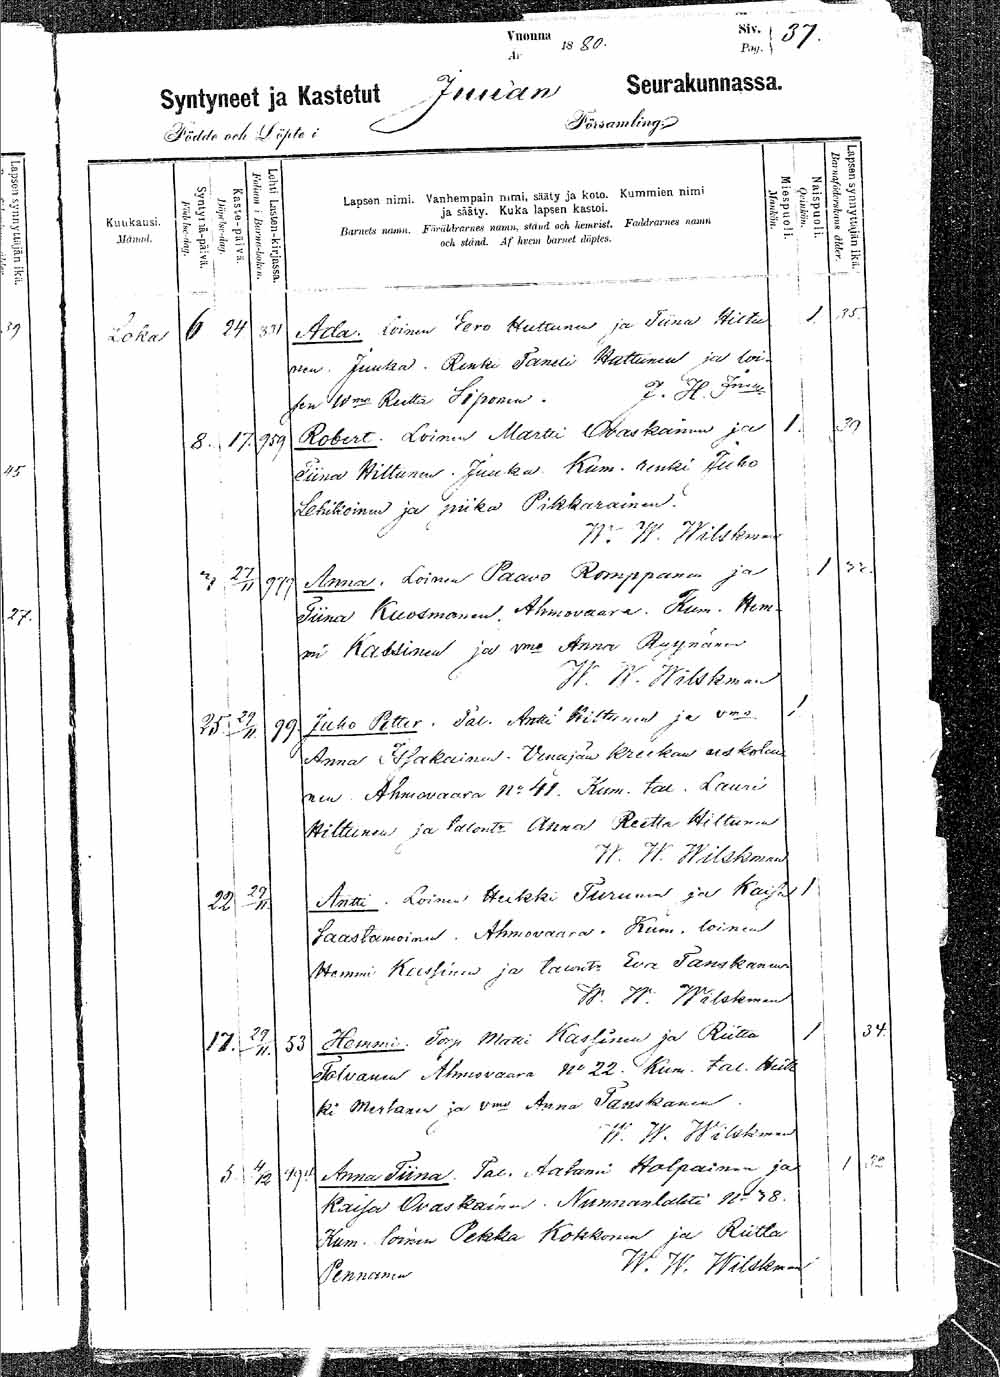 Vuonna 1880. Siv. 37.
År Pag.
Syntyneet ja Kastetut Juuan Seurakunnassa.
Födde och Döpte i Församling.
Kuukausi.
Månad.
Syntymä-päivä.
Födelse-dag.
Kaste-päivä.
Döpelse-dag.
Lehti Lasten-kirjassa.
Folium i Barna-boken.
Lapsen nimi. Vanhempain nimi, sääty ja koto. Kummien nimi
ja sääty. Kuka lapsen kastoi.
Barnets namn. Föräldrarnes namn, stånd och hemvist. Faddrarnes namn
och stånd. Af hvem barnet döptes.
Miespuoli.
Mankön.
Naispuoli.
Qvinkön.
Lapsen synnyttäjän ikä.
Barnaföderskans ålder.
Lapsen synnyttäjän ikä.
39
45
27.
Loka 6 24 331 Ada. Loinen Eero Huttunen ja Tiina Hiltu
nen. Juuka. Renki Taneli Huttunen ja loi-
sen vmo Reetta Siponen. J. H.
8. 17. 959 Robert. Loinen Martti Ovaskainen ja 1. 39
Tiina Hiltunen. Juuka. Kum. renki Juho
Lehikoinen ja piika Pikkarainen.
W. W. Wilskman
27/11 979 Anna. Loinen Paavo Romppanen ja 1
Tiina Kuosmanen. Ahmovaara. Kum. Hem-
mi Kassinen ja vmo Anna Ryynänen
W. W. Wilskman
25. 29/11. 99. Juho Petter. Tal. Antti Hiltunen ja vmo 1
Anna Issakainen. Venäjän kreikan uskolai
nen. Ahmovaara No 41. Kum. tal. Lauri
Hiltunen ja talont: Anna Reetta Hiltunen
W. W. Wilskman
22 29/11. Antti. Loinen Heikki Turunen ja Kaisa 1
Saastamoinen. Ahmovaara. Kum. loinen
Hemmi Kassinen ja talont: Eva Tanskanen
W. W. Wilskman
17. 29/11. 53 Hemmi. Torp Matti Kassinen ja Riitta 1 34.
Tolvanen Ahmovaara No 22. Kum. tal. Heik
ki Mertanen ja vmo Anna Tanskanen.
W. W. Wilskman
5 4/12 Anna Tiina. Tal. Aatami Holpainen ja 1
Kaisa Ovaskainen. Nunnanlahti No 38.
Kum. loinen Pekka Kokkonen ja Riitta
Pennanen W. W. Wilskman